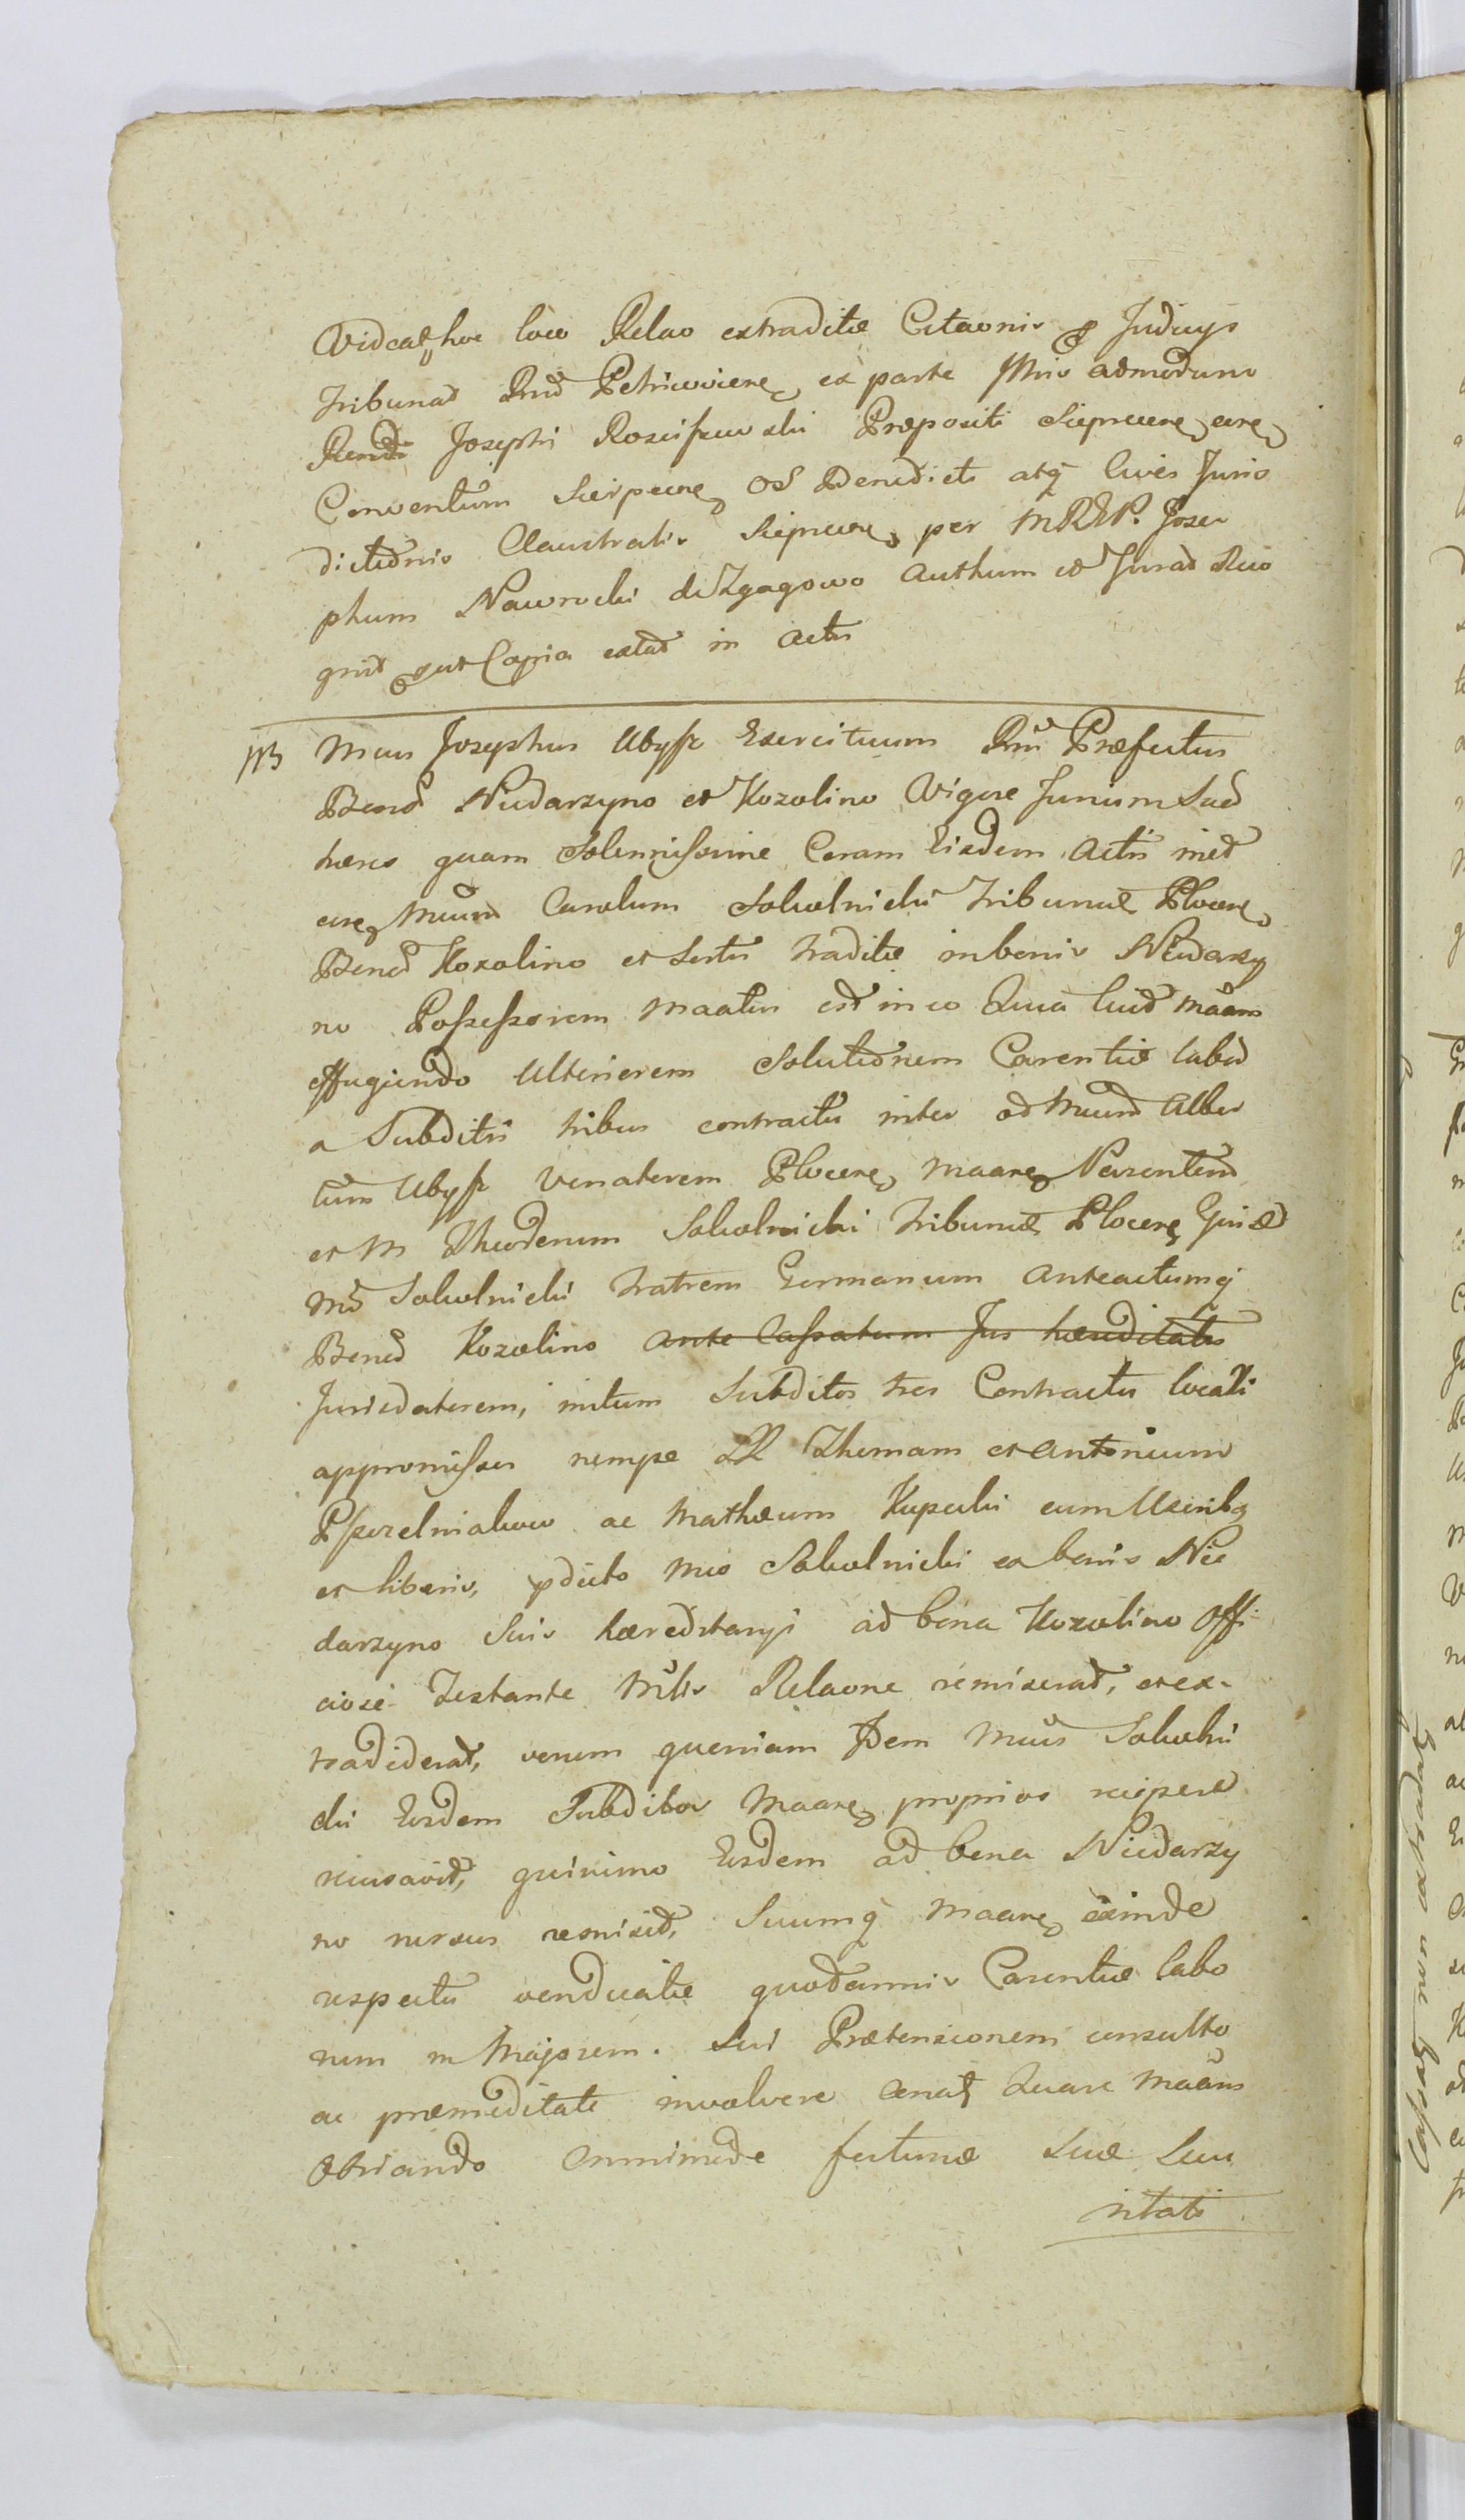 Videatr hoc loco Relao extraditæ Citaonis p Judicys
Tribunal Rnd Petricovien, ex parte Illris admodum
Rendi Josephi Rosciszewski Præpositi Sieprcen, cere
Conventum Sierpcen OS Benedicti atq cives Juris
dictionis Claustralis Sieprcen, per MREP. Jose
phum Nawrocki de Zgagowo Authum et Jurad Reco
gnit prout Copia extat in Actis
MB Mcus Josephus Ubysz Exercituum Rni Præfectus
Bonor Niedarzyno et Kozolino Vigore Jurium Sued
hæres quam Solennissime Coram Eisdem Actis med
cire, Mcum Carolum Sokolnicki Tribunum Plocen,
Bonor Kozolino et Sortis traditæ in bonis Niedarzy
no Possessorem maatus est in eo Quia licet maans
effugiendo Ulteriorem Solutionem Carentiæ labor
a Subditis tribus contractu inter od Mcum Alber
tum Ubysz Venatorem Plocen, maare Parentem
et M Theodorum Sokolnicki Tribunum Plocen,
md Sokolnicki Fratrem Germanum anteactumq
Bonor Kozolino ante Cassatum Jus hæreditatis
Jurisdatorem, initum Subditos tres Contractu locali
appromissos nempe LL Thomam et Antonium
Pszczelniakow ac Mathæum Kupecki cum Uxoribq
et liberis, pdicto Mco Sokolnicki ex bonis Nie
darzyno Suis hæreditarys ad bona Kozolino Offi
ciose Testante Mlis Relaone remiserat, et ex-
tradiderat, verum quoniam Idem Mcus Sokolni
cki Eosdem Subditos Maare, proprios recipere
recusavit, quinimo Eosdem ad bona Niedarzy
no rursus remisit, Suumq Maare, exinde
respectu vendicatæ quotannis Carentiæ labo
rum in Majorem Sui Prætensionem consulto
ac præmeditate involvere conatr Quare Maans
Obviando Omnimode fortunæ Suæ Secu
ritati
Cassata non extrad